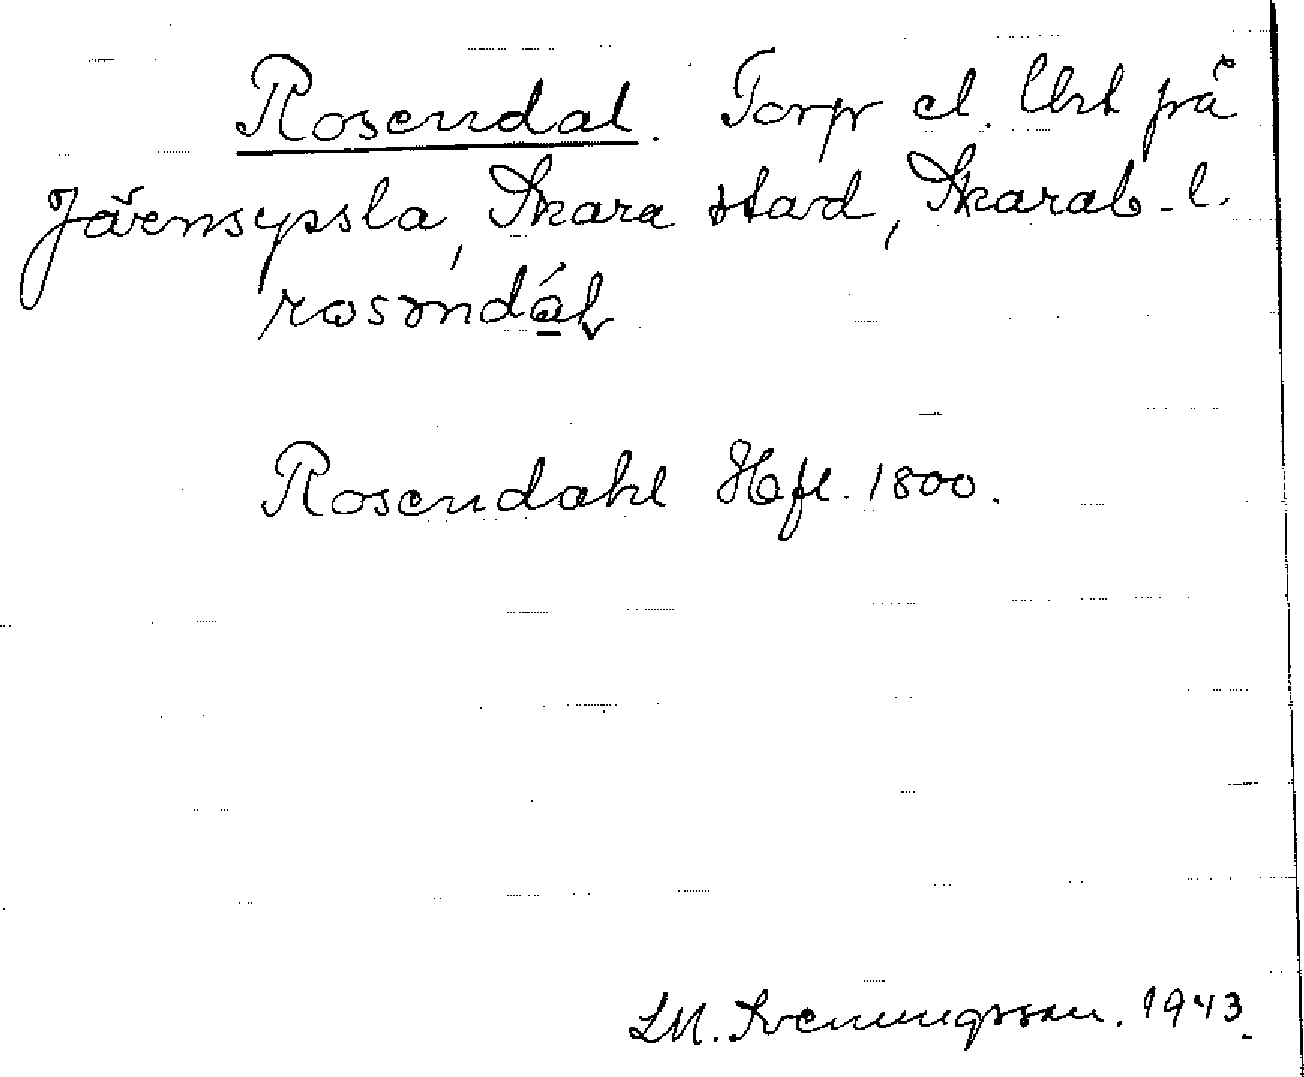 Rosendal. Torp el. Urt på
Järnsyssla, Skara stad, Skarab. l.
Rosendahl Hfl. 1800.
LM. Svenungsson. 1943.